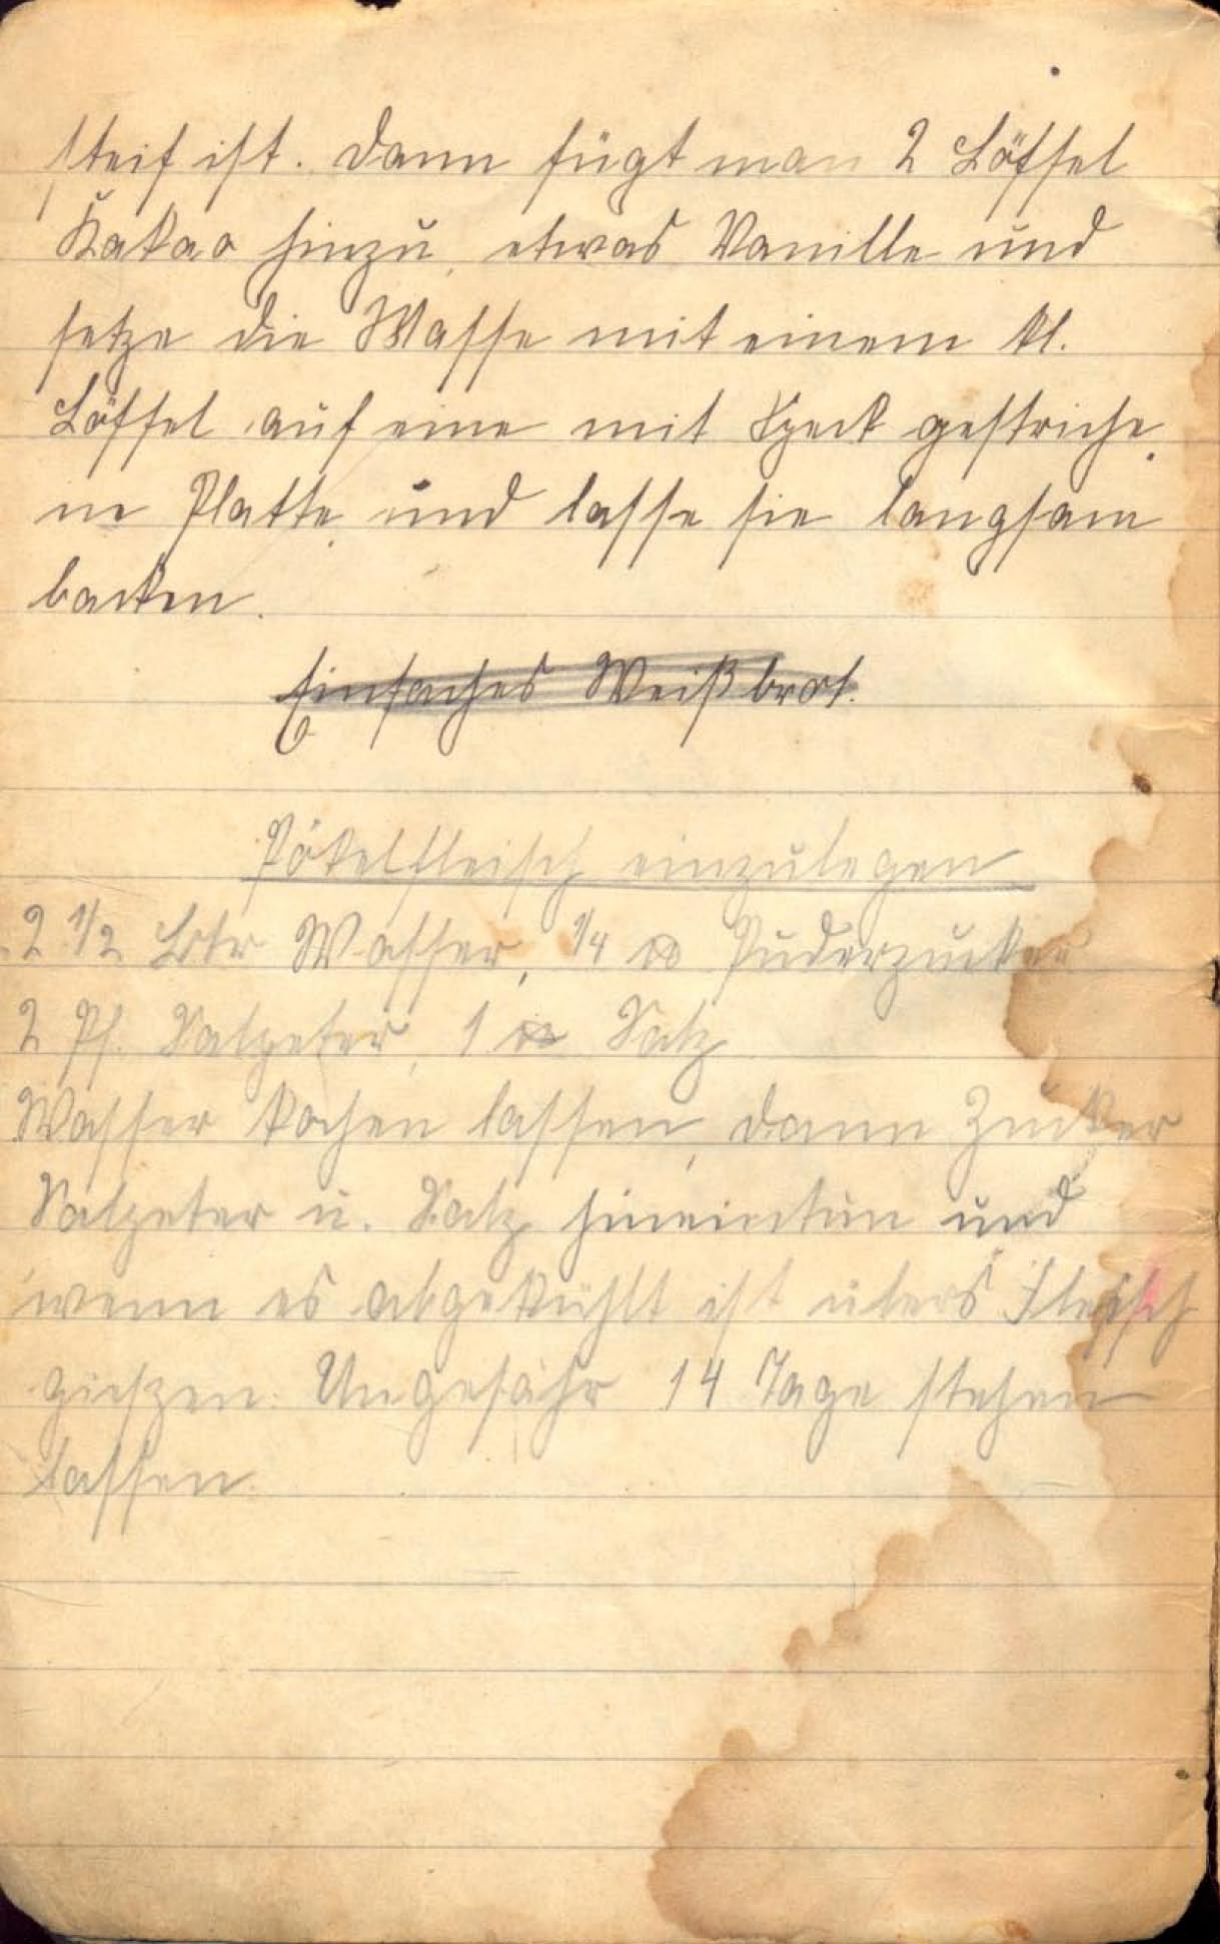 steif ist. Dann fügt man 2 Löffel
Kakao hinzu, etwas Vanille und
setze die Masse mit einem kl.
Löffel auf eine mit Speck gestriche
ne Platte und lasse sie langsam
backen.
Einfaches Weißbrot.
Pökelfleisch einzulegen
2 1/2 Ltr Wasser, 1/4 ℔ Puderzucker
2 Pf. Salpeter, 1 ℔ Salz
Wasser kochen lassen, dann Zucker
Salpeter u. Salz hineintun und
wenn es abgekühlt ist übers Fleisch
gieszen. Ungefähr 14 Tage stehen
lassen.